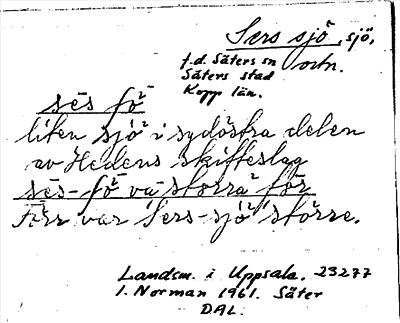 Sers sjö, sjö,
f.d. Säters sn och n.
Säters stad
Kopp län.
sēs fö²
liten sjö i sydöstra delen
av Hedens skifteslag
sēs-fö² va störra² för
Förr var "Sers-sjö" större.
Landsm. i Uppsala. 23277
I. Norman 1961. Säter
DAL.